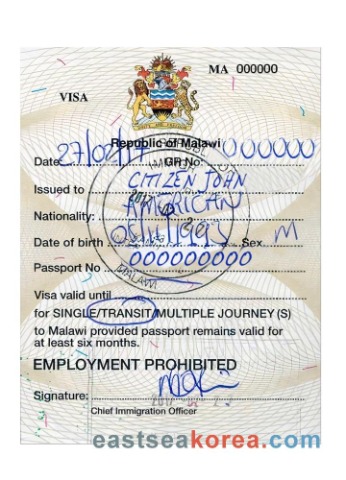 MA 000000
VISA
UNITY AND FREEDOM
Republic of Malawi
Date 27/02/17 GR No: 000000
Issued to CITIZEN JOHN
Nationality: AMERICAN
Date of birth Sex M
Passport No 000000000
MALAWI
Visa valid until
for SINGLE/TRANSIT/MULTIPLE JOURNEY (S)
to Malawi provided passport remains valid for
at least six months.
EMPLOYMENT PROHIBITED
Signature:
Chief Immigration Officer
eastseakorea.com